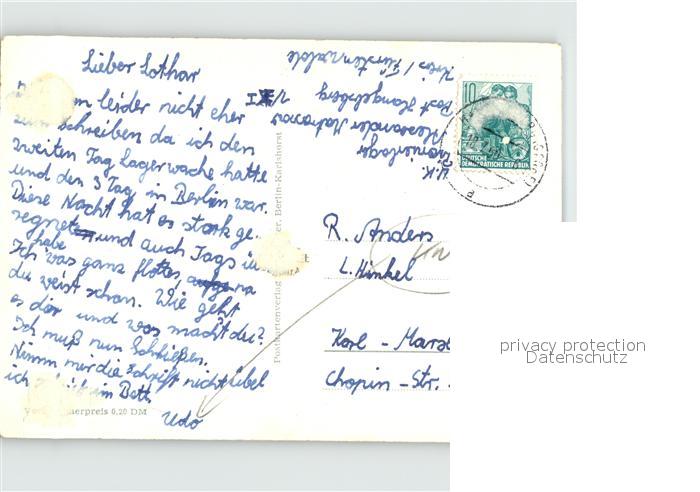 Lieber Lothar
kam leider nicht eher
zum schreiben da ich den
zweiten Tag Lagerwache hatte
und den 3 Tag in Berlin war.
Diese Nacht hat es stark ge-
regnet und auch Tags ü
habe
Ich was ganz flottes,
du weist schon. Wie geht
es dir und was machst du?
Ich muß nun Schließen.
Nimm mir die Schrift nicht übel
ich im Bett.
Udo
nerpreis 0,20 DM
Postkartenverlag er, Berlin-Karlshorst
U.K.
Pionierlager
Alexander Matrosow
Post Hangelsberg
Kreis / Fürstenwalde
10
DEUTSCHE
DEMOKRATISCHE REPUBLIK
R. Anders
L. Hinkel
Karl - Marx
Chopin - Str.
privacy protection
Datenschutz